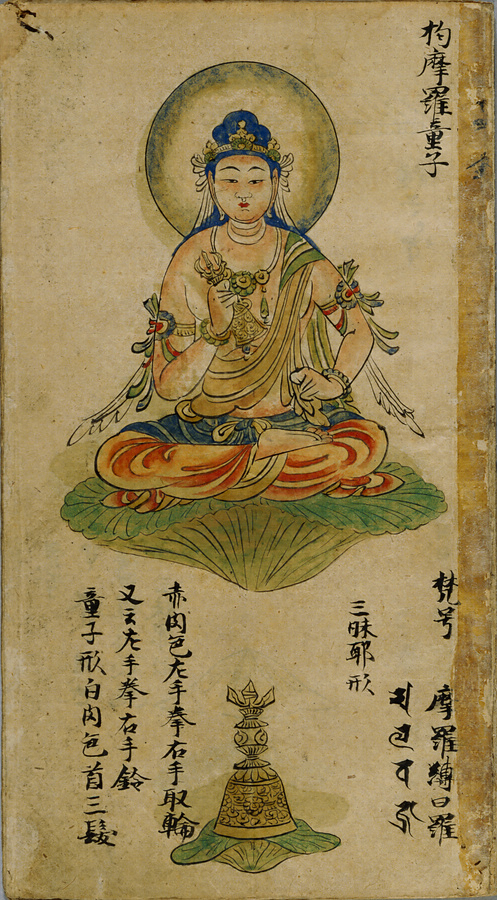 拘摩羅童子
梵号 摩羅縛曰羅
三昧耶形
赤肉色左手拳右手取輪
又云左手拳右手鈴
童子形白肉色首三髮